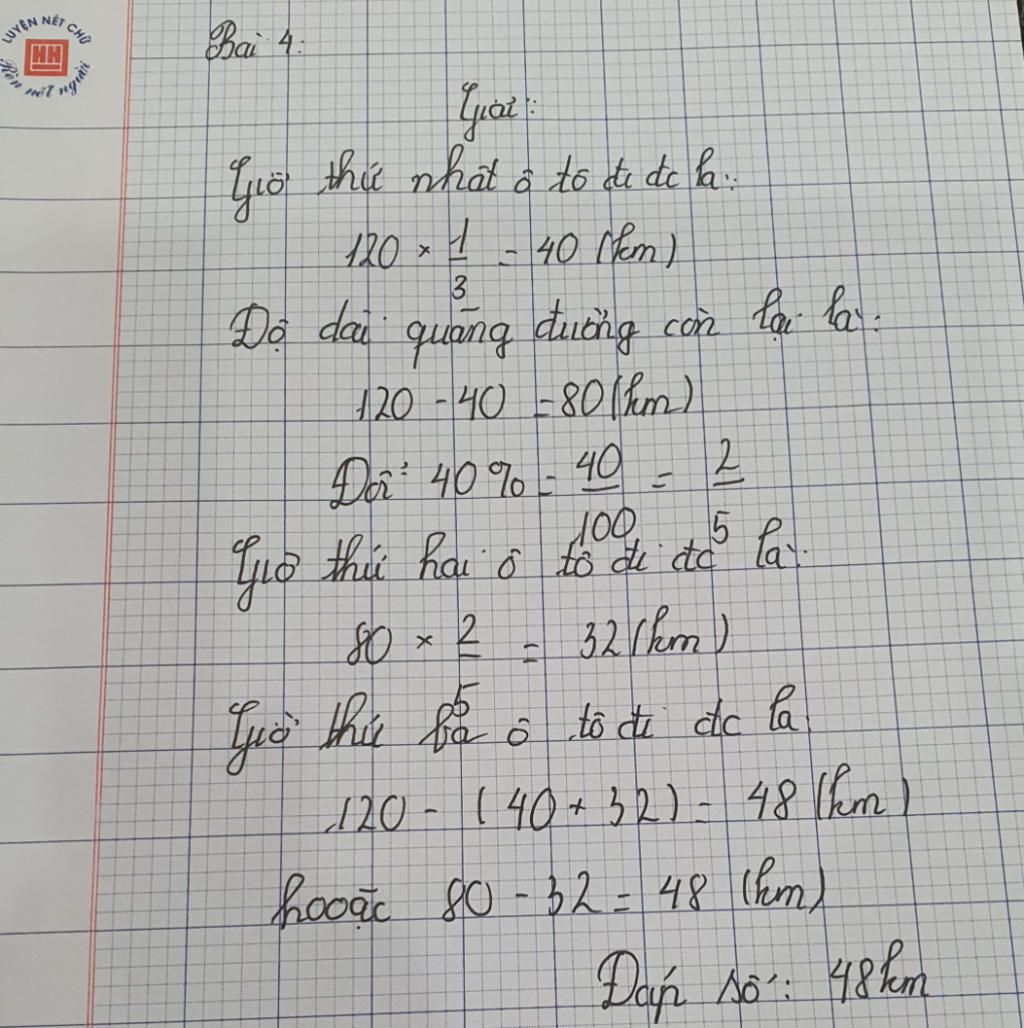 LUYỆN NÉT CHỮ
HH
Rèn nết người
Bài 4:
Giải:
Giờ thứ nhất ô tô đi đc là:
120 × 1/3 = 40 (km)
Độ dài quãng đường còn lại là:
120 - 40 = 80 (km)
Đổi: 40% = 40/100 = 2/5
Giờ thứ hai ô tô đi đc là:
80 × 2/5 = 32 (km)
Giờ thứ ba ô tô đi đc là
120 - (40 + 32) = 48 (km)
hooặc 80 - 32 = 48 (km)
Đáp số: 48km